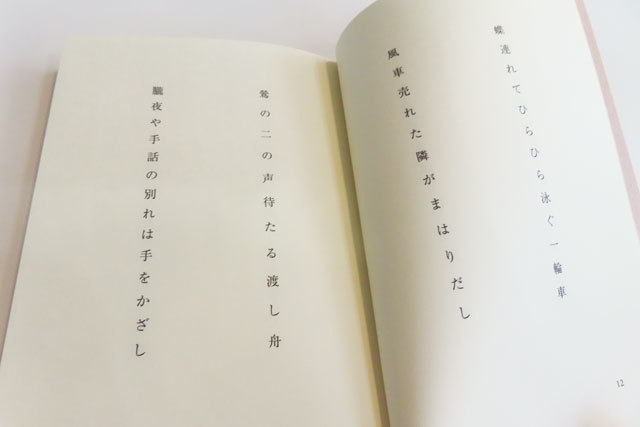 蝶連れてひらひら泳ぐ一輪車
風車売れた隣がまはりだし
12
鶯の二の声待たる渡し舟
朧夜や手話の別れは手をかざし